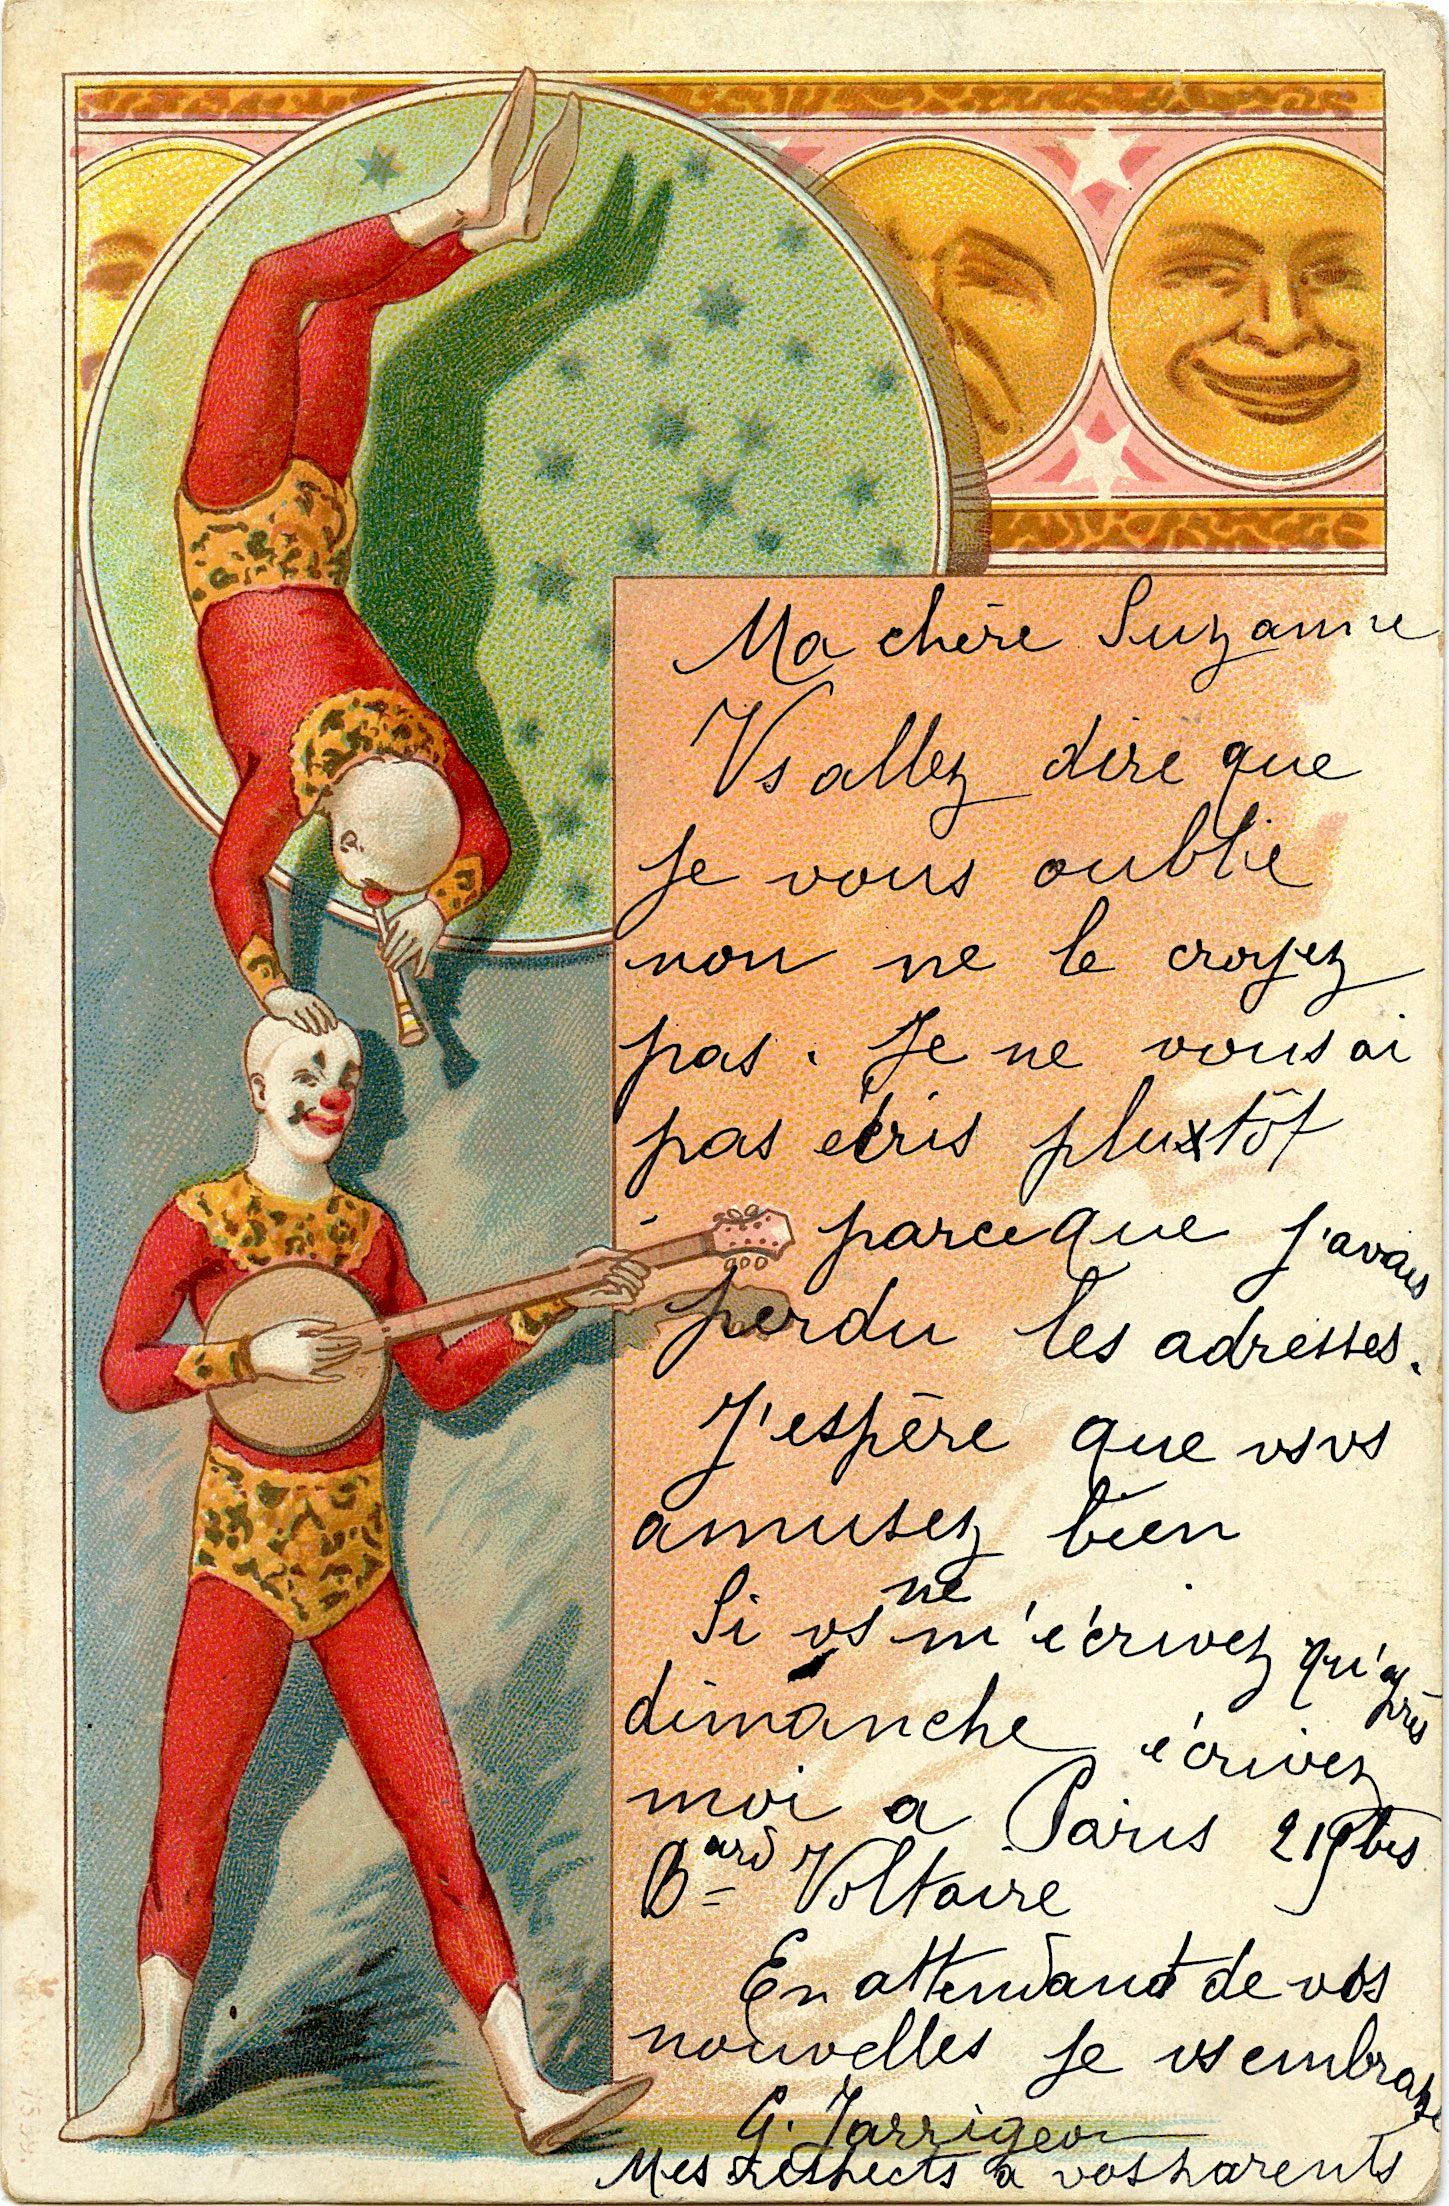 Ma chère Suzanne
Vs allez dire que
je vous oublie
non ne le croyez
pas. Je ne vous ai
pas écris pluxtôt
parceque j'avais
perdu les adresses.
J'espère que vs vs
amusez bien
Si vs ne m'écrivez qu'après
dimanche écrivez
moi a Paris 219bis
Bard Voltaire
En attendant de vos
nouvelles je vs embrasse
G. Jarrigeon
Mes respects a vos parents